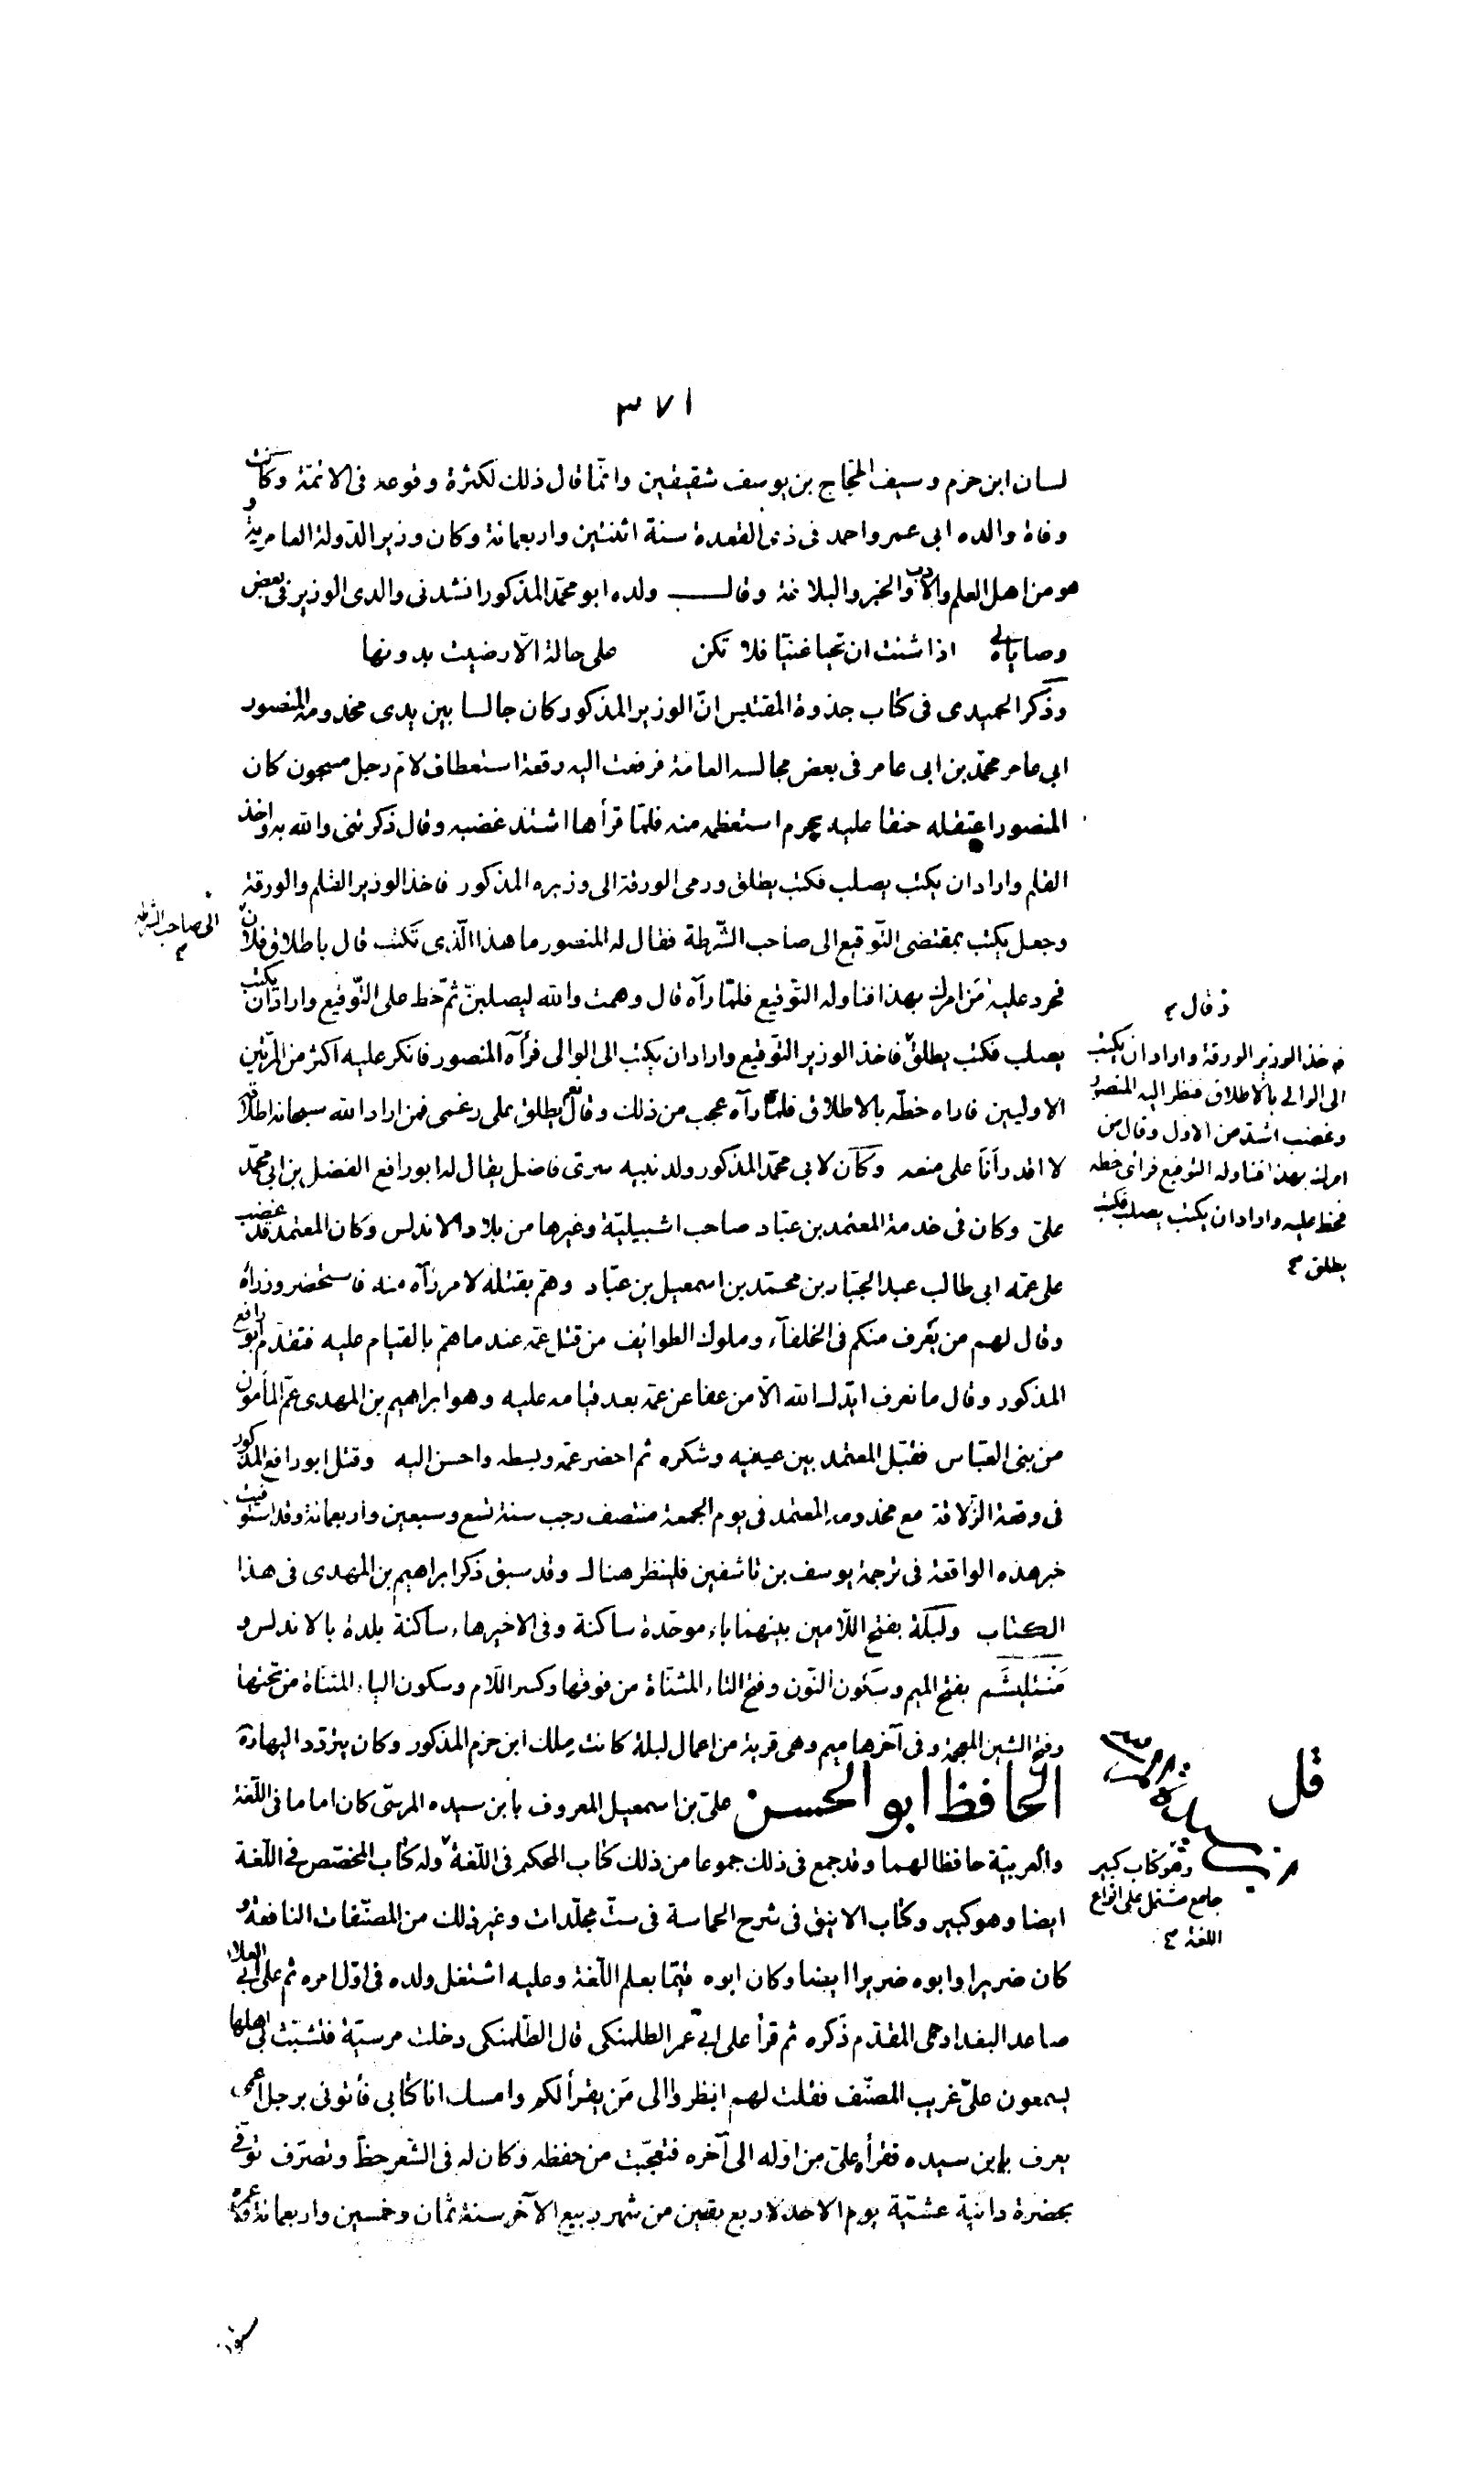 ٣٧١
لسان ابن حزم وسيف الحجّاج بن يوسف شقيقين وانّما قال ذلك لكثرة وقوعه فى الائمّة وكانت
وفاة والده ابى عمر واحمد فى ذى القعدة سنة اثنتين واربعمائة وكان وزير الدّولة العامرية و
هو من اهل العلم والادب والخير والبلاغة وقال ولده ابو محمّد المذكور انشدنى والدى الوزير فى بعض
وصاياه لى اذا شئت ان تحيا غنيّا فلا تكن على حالة الّا رضيت بدونها
وذكر الحميدى فى كتاب جذوة المقتبس انّ الوزير المذكور كان جالسا بين يدى مخدومه المنصور
ابى عامر محمّد بن ابى عامر فى بعض مجالسه العامّة فرفعت اليه رقعة استعطاف لامّ رجل مسجون كان
المنصور اعتقله حنقا عليه بجرم استعظمه منه فلمّا قرأها اشتد غضبه وقال ذكرتنى والله به واخذ
القلم واراد ان يكتب يصلب فكتب يطلق ورمى الورقة الى وزيره المذكور فاخذ الوزير القلم والورقة
وجعل يكتب بمقتضى التّوقيع الى صاحب الشّرطة فقال له المنصور ما هذا الّذى تكتب قال باطلاق فلان
الى صاحب الشرطة
فحرد عليه مَن امرك بهذا فناوله التّوقيع فلمّا رآه قال وهمت والله ليصلبنّ ثمّ خط على التّوقيع واراد ان يكتب
يصلب فكتب يطلق فاخذ الوزير التّوقيع واراد ان يكتب الى الوالى فرأه المنصور فانكر عليه اكثر من المرّتين
الاوليين فاراه خطّه بالاطلاق فلمّا رآه عجب من ذلك وقال نعم يطلق على رغمى فمن اراد الله سبحانه اطلاقه
لا اقدر أنا على منعه وكان لابى محمّد المذكور ولد نبيه سرىّ فاضل يقال له ابو رافع الفضل بن ابى محمّد
علىّ وكان فى خدمة المعتمد بن عبّاد صاحب اشبيليّة وغيرها من بلاد الاندلس وكان المعتمد قد غضب
على عمّه ابى طالب عبد الجبّار بن محمّد بن اسمعيل بن عبّاد وهمّ بقتله لامر رآه منه فاستحضر وزرائه
وقال لهم من يعرف منكم فى الخلفآء وملوك الطوائف من قتل عمّه عندما همّ بالقيام عليه فتقدّم ابو رافع
المذكور وقال ما نعرف ايّدك الله الّا من عفا عن عمّه بعد قيامه عليه وهو ابراهيم بن المهدى عمّ المأمون
من بنى العبّاس فقبّل المعتمد بين عينيه وشكره ثم احضر عمّه وبسطه واحسن اليه وقتل ابو رافع المذكور
فى وقعة الزّلاقة مع مخدومه المعتمد فى يوم الجمعة منتصف رجب سنة تسع وسبعين واربعمائة وقد استوفيت
خبر هذه الواقعة فى ترجمة يوسف بن تاشفين فلينظر هناك وقد سبق ذكر ابراهيم بن المهدى فى هذا
الكتاب ولبلة بفتح اللّامين بينهما باء موحّدة ساكنة وفى الاخيرهاء ساكنة بلدة بالاندلس و
مَنْتَلِيشَم بفتح الميم وسكون النّون وفتح التاء المثنّاة من فوقها وكسر اللّام وسكون الياء المثنّاة من تحتها
وفتح الشين المعجمة وفى آخرها ميم وهى قرية من اعمال لبلة كانت ملك ابن حزم المذكور وكان يتردّد اليها
الحافظ ابو الحسن علىّ بن اسمعيل المعروف بابن سيده المرسّى كان اماما فى اللّغة
والعربيّة حافظا لهما وقد جمع فى ذلك جموعا من ذلك كتاب المحكم فى اللّغة وله كتاب المخصّص فى اللّغة
ايضا وهو كبير وكتاب الانيق فى شرح الحماسة فى ستّ مجلّدات وغير ذلك من المصنّفات النافعة و
كان ضريرا وابوه ضريرا ايضا وكان ابوه قيّما بعلم اللّغة وعليه اشتغل ولده فى اوّل امره ثم على ابى العلاء
صاعد البغدادى المقدّم ذكره ثم قرأ على ابى عمر الطلمنكى قال الطّلمنكى دخلت مرسيّة فتشبّث بى اهلها
يسمعون علىّ غريب المصنّف فقلت لهم انظروا الى مَن يقرأ لكم وامسك انا كتابى فأتونى برجل اعمى
يعرف بابن سيده فقرأه علىّ من اوّله الى آخره فتعجّبت من حفظه وكان له فى الشّعر حظّ وتصرّف توفّى
بحضرة دانية عشيّة يوم الاحد لاربع بقين من شهر ربيع الآخر سنة ثمان وخمسين واربعمائة وعمره
فقال
فاخذ الوزير الورقة واراد ان يكتب
الى الوالى بالاطلاق فنظر اليه المنصور
وغضب اشدّ من الاول وقال من
امرك بهذا فناوله التوقيع فرأى خطه
فخط عليه واراد ان يكتب يصلب فكتب
يطلق
وهو كتاب كبير
جامع مشتمل على انواع
اللغة